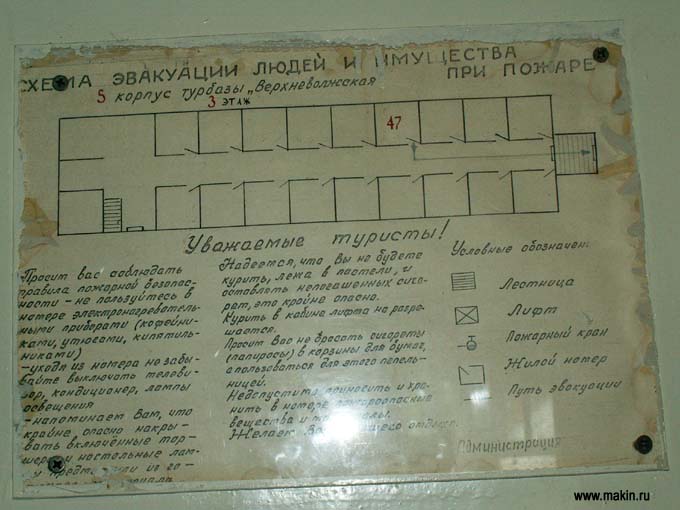 СХЕМА ЭВАКУАЦИИ ЛЮДЕЙ И ИМУЩЕСТВА ПРИ ПОЖАРЕ
5 корпус турбазы „Верхневолжская
3 ЭТАЖ
47
Уважаемые туристы!
Просит вас соблюдать
правила пожарной безопас-
ности – не пользуйтесь в
номере электронагреватель-
ными приберати (кофейни-
ками, утюгами, кипятиль-
никами)
–уходя из номера не забы-
вайте выключать телеви-
зор, кондиционер, лампы
освещения
–напоминает Вам, что
крайне опасно накры-
вать включённые тор-
шеры и настольные лам-
Надеется, что Вы не будете
курить, лежа в пастели, и
оставлять непогашенные сига-
рет, это крайне опасно.
Курить в кабине лифта не разре-
шается.
Просит Вас не бросать сигареты
(папиросы) в корзины для бумаг,
а пользоваться для этого пепель-
ницей.
Недопустимо приносить и хра-
нить в номере пожароопасные
вещества и
Желает
отдыха.
Условные обозначен
Лестница
Лифт
Пожарный кран
Жилой номер
Путь эвакуации
Администрация
www.makin.ru